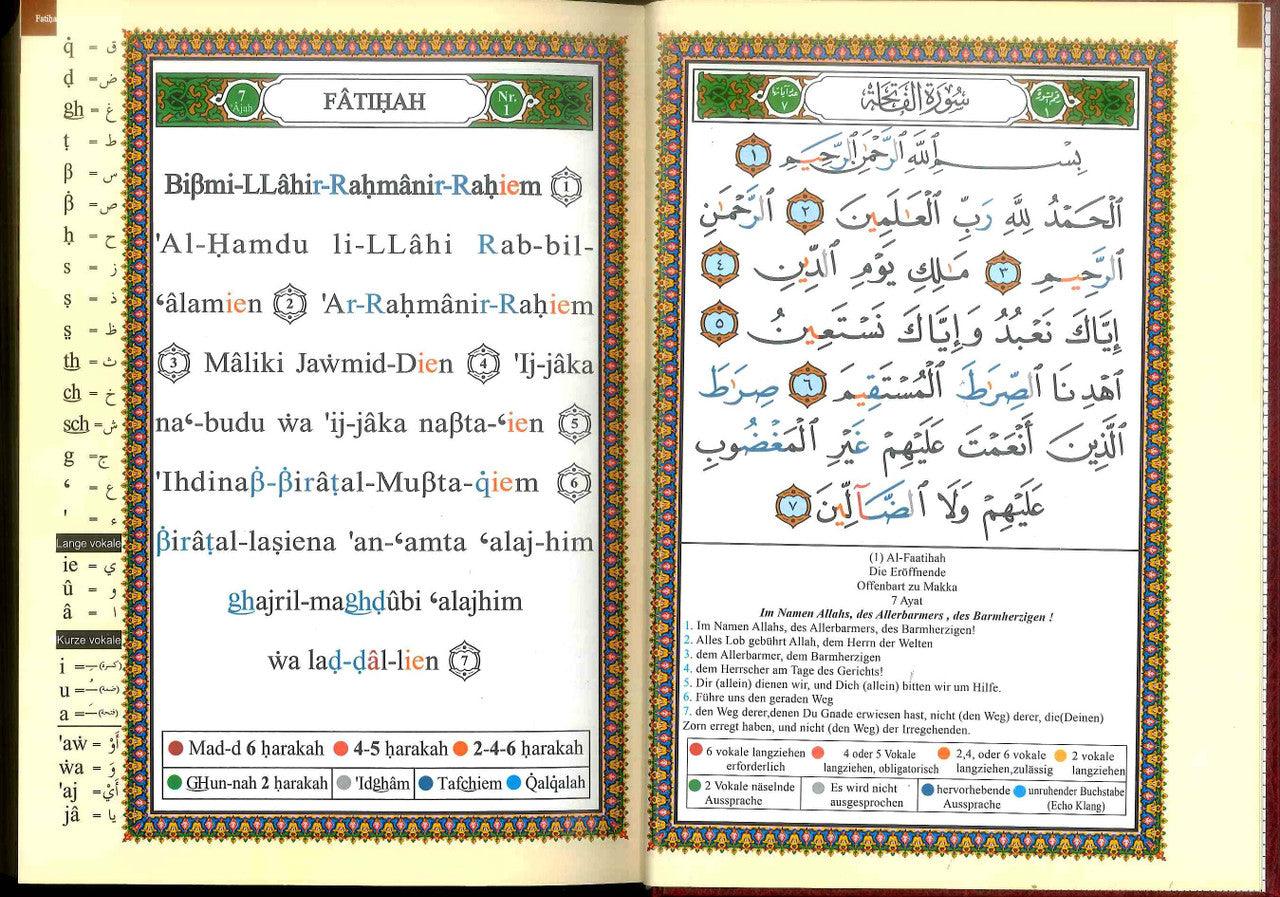 Fatiḥa
q̇ = ق
ḍ = ض
gh = غ
ṭ = ط
β = س
β̇ = ص
ḥ = ح
s = ز
ṣ = ذ
s̤ = ظ
th = ث
ch = خ
sch = ش
g = ج
ʻ = ع
' = ء
Lange vokale
ie = ي
û = و
â = ا
Kurze vokale
i = ـِ (كسرة)
u = ـُ (ضمة)
a = ـَ (فتحة)
'aẇ = أَوْ
ẇa = وَ
'aj = أَيْ
jâ = يا
7 Âjah
FÂTIḤAH
Nr. 1
Biβmi-LLâhir-Raḥmânir-Raḥiem 1
'Al-Ḥamdu li-LLâhi Rab-bil-
ʻâlamien 2 'Ar-Raḥmânir-Raḥiem
3 Mâliki Jaẇmid-Dien 4 'Ij-jâka
naʻ-budu ẇa 'ij-jâka naβta-ʻien 5
'Ihdinaβ̇-β̇irâṭal-Muβta-q̇iem 6
β̇irâṭal-laṣiena 'an-ʻamta ʻalaj-him
ghajril-maghḍûbi ʻalajhim
ẇa laḍ-ḍâl-lien 7
Mad-d 6 ḥarakah 4-5 ḥarakah 2-4-6 ḥarakah
GHun-nah 2 ḥarakah 'Idghâm Tafchiem Q̇alq̇alah
سُورَةُ الفَاتِحَة
بِسْمِ ٱللَّهِ ٱلرَّحْمَٰنِ ٱلرَّحِيمِ ١
ٱلْحَمْدُ لِلَّهِ رَبِّ ٱلْعَٰلَمِينَ ٢ ٱلرَّحْمَٰنِ
ٱلرَّحِيمِ ٣ مَٰلِكِ يَوْمِ ٱلدِّينِ ٤
إِيَّاكَ نَعْبُدُ وَإِيَّاكَ نَسْتَعِينُ ٥
ٱهْدِنَا ٱلصِّرَٰطَ ٱلْمُسْتَقِيمَ ٦ صِرَٰطَ
ٱلَّذِينَ أَنْعَمْتَ عَلَيْهِمْ غَيْرِ ٱلْمَغْضُوبِ
عَلَيْهِمْ وَلَا ٱلضَّآلِّينَ ٧
(1) Al-Faatihah
Die Eröffnende
Offenbart zu Makka
7 Ayat
Im Namen Allahs, des Allerbarmers , des Barmherzigen !
1. Im Namen Allahs, des Allerbarmers, des Barmherzigen!
2. Alles Lob gebührt Allah, dem Herrn der Welten
3. dem Allerbarmer, dem Barmherzigen
4. dem Herrscher am Tage des Gerichts!
5. Dir (allein) dienen wir, und Dich (allein) bitten wir um Hilfe.
6. Führe uns den geraden Weg
7. den Weg derer,denen Du Gnade erwiesen hast, nicht (den Weg) derer, die(Deinen)
Zorn erregt haben, und nicht (den Weg) der Irregehenden.
6 vokale langziehen erforderlich
4 oder 5 Vokale langziehen, obligatorisch
2,4, oder 6 vokale langziehen,zulässig
2 vokale langziehen
2 Vokale näselnde Aussprache
Es wird nicht ausgesprochen
hervorhebende Aussprache
unruhender Buchstabe (Echo Klang)